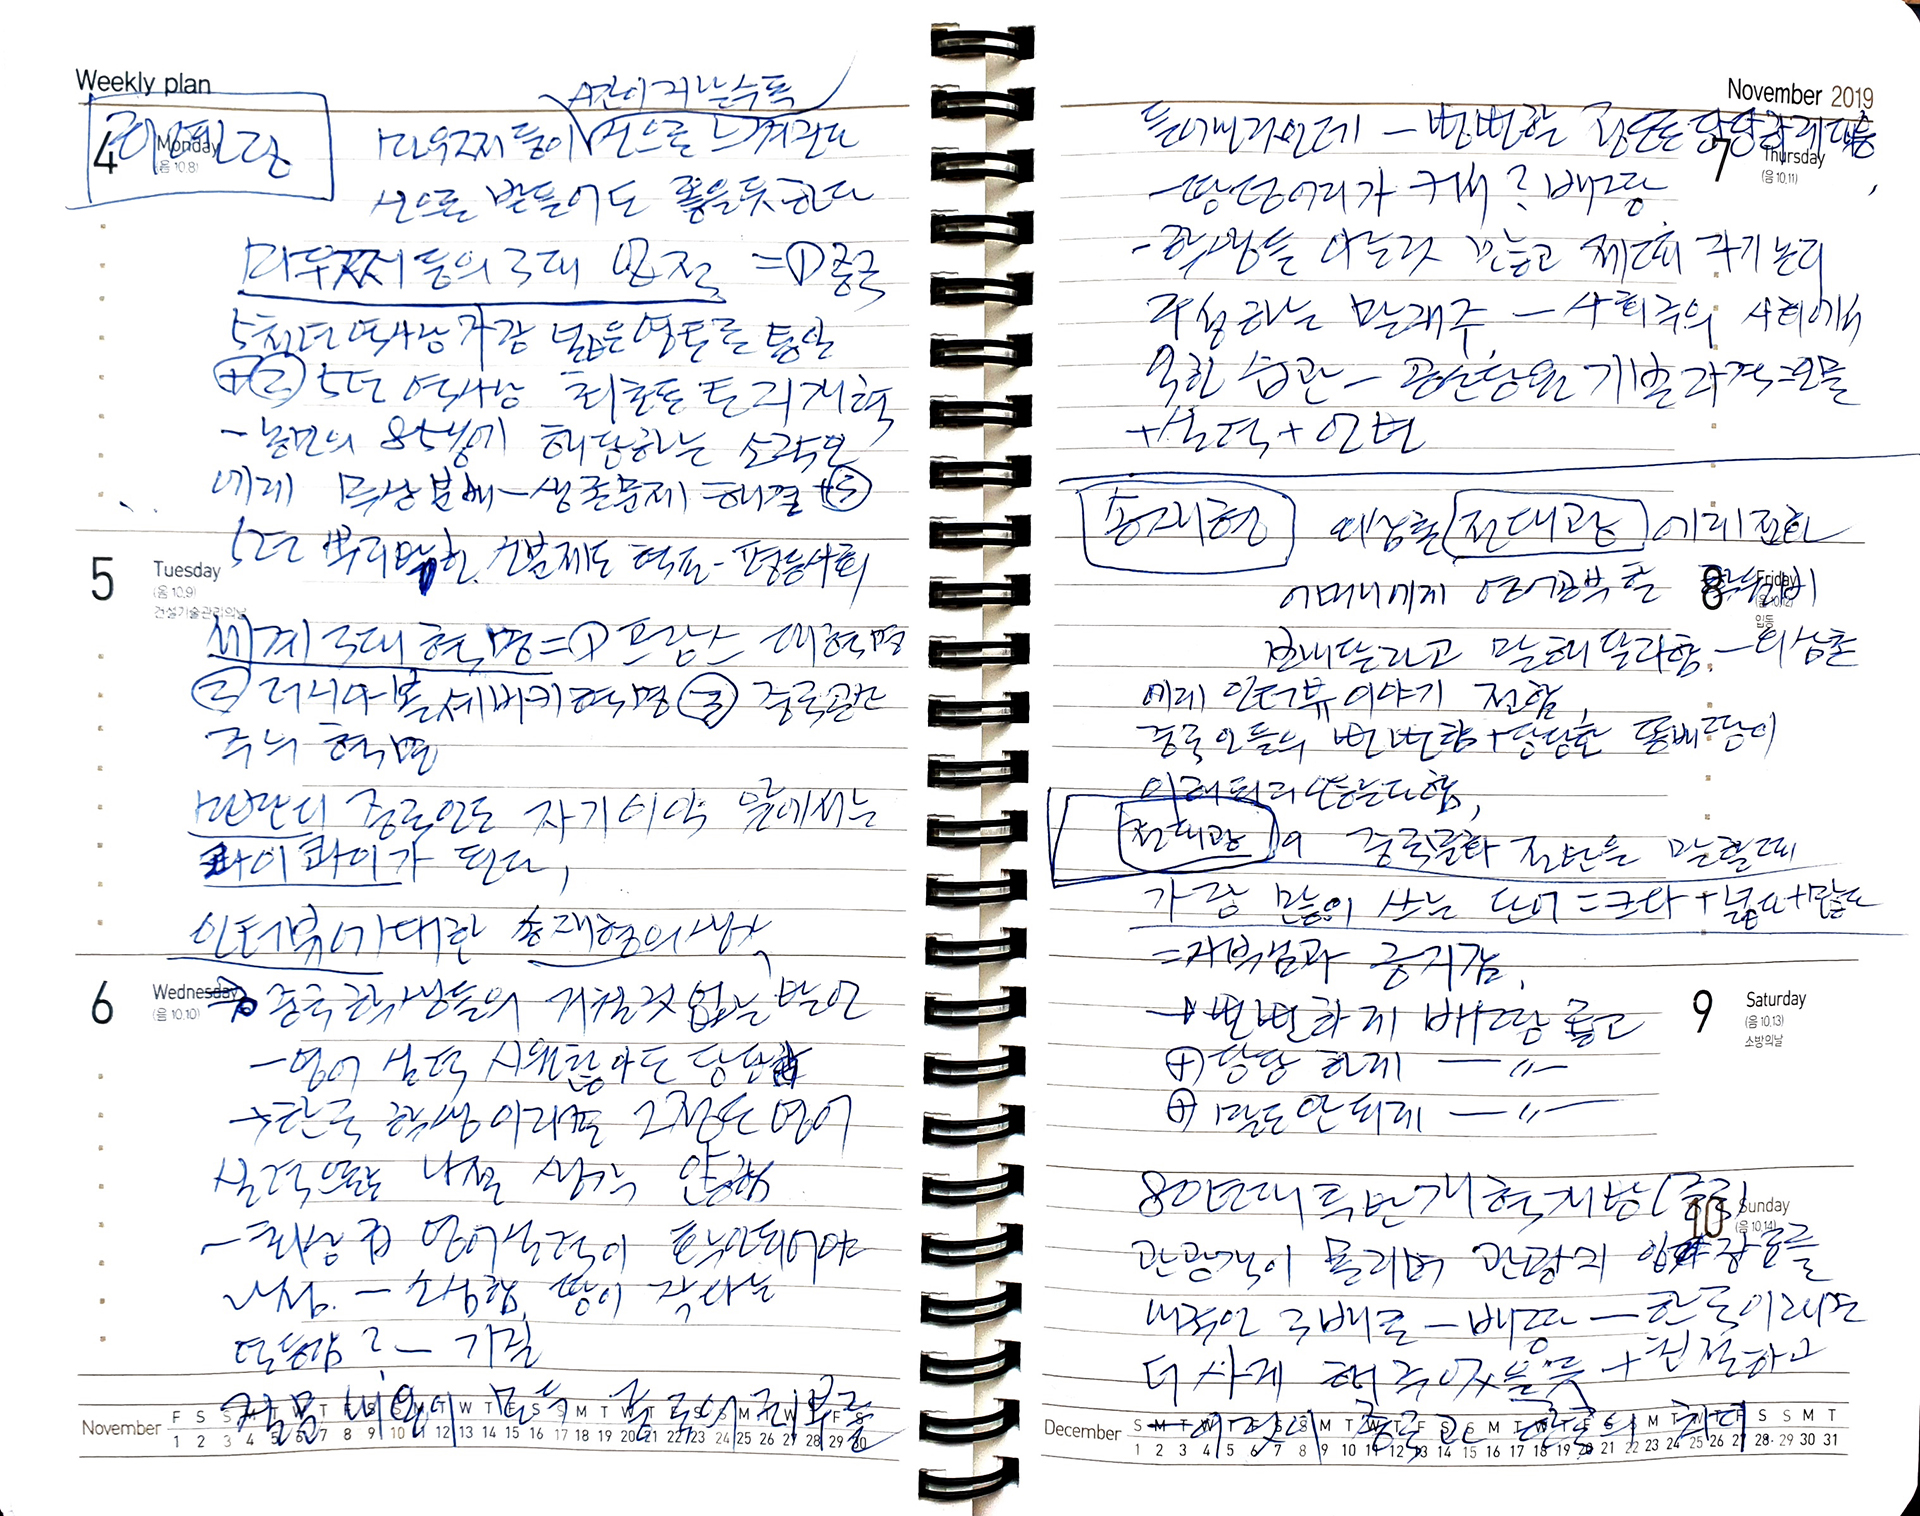 Weekly plan
시간이 지날수록
4 Monday
(음 10.8)
마우쩌둥이 신으로 느껴진다
신으로 받들어도 좋을듯하다
마우쩌둥의 3대 업적 = ① 중국
5천년 역사상 가장 넓은 영토를 통일
+ ② 5천년 역사상 최초로 토지개혁
- 농민의 85%에 해당하는 소작민
에게 무상분배 - 생존문제 해결 + ③
5천년 뿌리박힌 신분제도 혁파 - 평등사회
5 Tuesday
(음 10.9)
건설기술관리의날
세계 3대 혁명 = ① 프랑스 대혁명
② 러시아 볼세비키 혁명 ③ 중국공산
주의 혁명
중국인도 자기 이익 앞에서는
가 된다,
인터뷰에 대한 송재형의 생각
6 Wednesday
(음 10.10)
중국 학생들의 거침없는 발언
- 영어 실력 시원찮아도 당당함
→ 한국 학생이라면 그정도 영어
실력으로는 나설 생각 안함
- 최상급 영어실력이 확인되어야
나섬. - 소심함, 땅이 작다는
열등감? - 기질
질문 내용이 모두 중국의 치부를
November F S S M T W T F S S M T W T F S S M T W T F S S M T W T F S
1 2 3 4 5 6 7 8 9 10 11 12 13 14 15 16 17 18 19 20 21 22 23 24 25 26 27 28 29 30
November 2019
들어낸 것인데 - 뻔뻔할 정도로 당당하게 대응
7 Thursday
(음 10.11)
- 땅덩어리가 커서? 배짱
- 학생들 아는것 많고 제대로 자기논리
주장하는 말재주 - 사회주의 사회에서
익힌 습관 - 공산당원 기본자격 = 인물
+ 실력 + 언변
송재형 외삼촌 전대광 에게 전화
8 Friday
(음 10.12)
입동
어머니에게 영어공부할
보내달라고 말해달라함 - 외삼촌
에게 인터뷰 이야기 전함,
중국인들의 뻔뻔함 + 당당함 똥배짱이
이해되지 않는다함,
전대광이 중국문화 전반을 말할때
가장 많이 쓰는 단어 = 크다 + 넓다 + 많다
= 자부심과 긍지감,
→ 뻔뻔하게 배짱 좋고
9 Saturday
(음 10.13)
소방의날
⊕ 당당하게 ― 〃 ―
⊕ 말도 안되게 ― 〃 ―
80년대 특반 개혁개방(중국)
10 Sunday
(음 10.14)
관광객이 몰리며 관광지 입장료를
내국인 3배로 - 배짱 - 한국이라면
더 싸게 해 주었을듯 + 친절하고
이것이 중국과 한국의 차이
December S M T W T F S S M T W T F S S M T W T F S S M T W T F S S M T
1 2 3 4 5 6 7 8 9 10 11 12 13 14 15 16 17 18 19 20 21 22 23 24 25 26 27 28 29 30 31